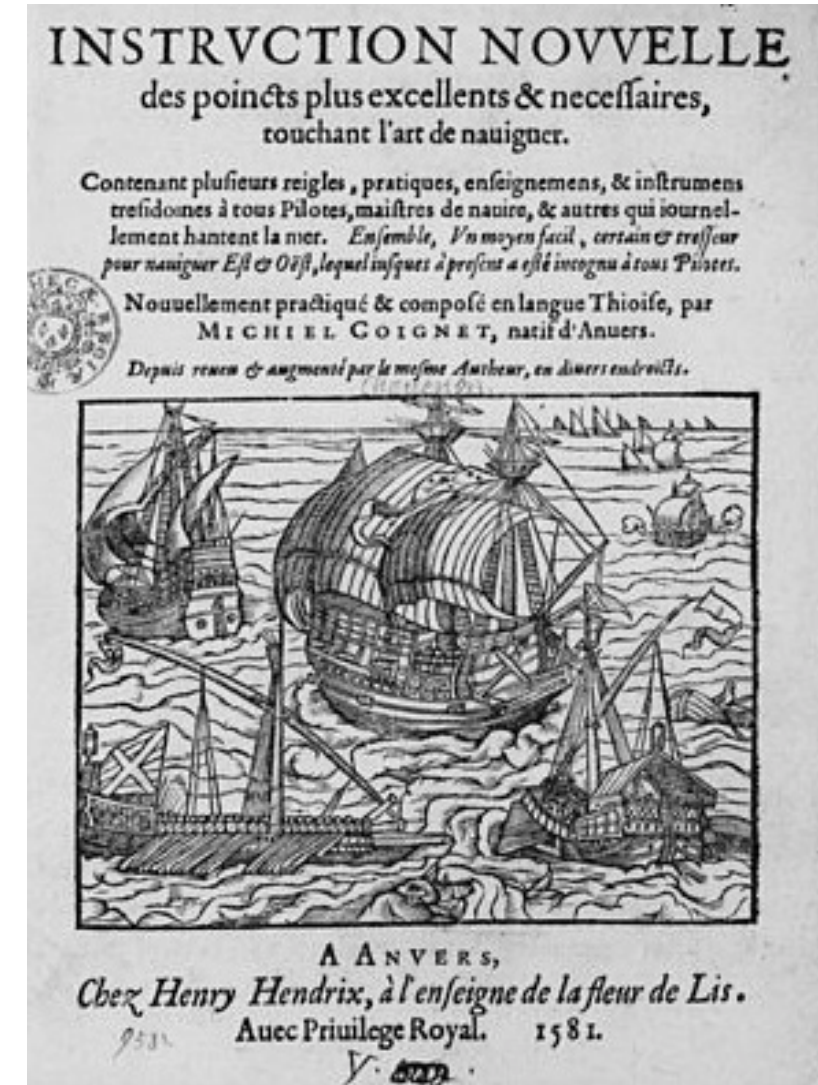 INSTRVCTION NOVVELLE
des poincts plus excellents & neceſſaires,
touchant l'art de nauiguer.
Contenant pluſieurs reigles, pratiques, enſeignemens, & inſtrumens
treſidoines à tous Pilotes, maiſtres de nauire, & autres qui iournel-
lement hantent la mer. Enſemble, Vn moyen facil, certain & treſſeur
pour nauiguer Eſt & Oëſt, lequel iuſques à preſent a eſté incognu à tous Pilotes.
Nouuellement practiqué & compoſé en langue Thioiſe, par
MICHIEL COIGNET, natif d'Anuers.
Depuis reueu & augmenté par le meſme Autheur, en diuers endroicts.
A ANVERS,
Chez Henry Hendrix, à l'enſeigne de la fleur de Lis.
Auec Priuilege Royal. 1581.